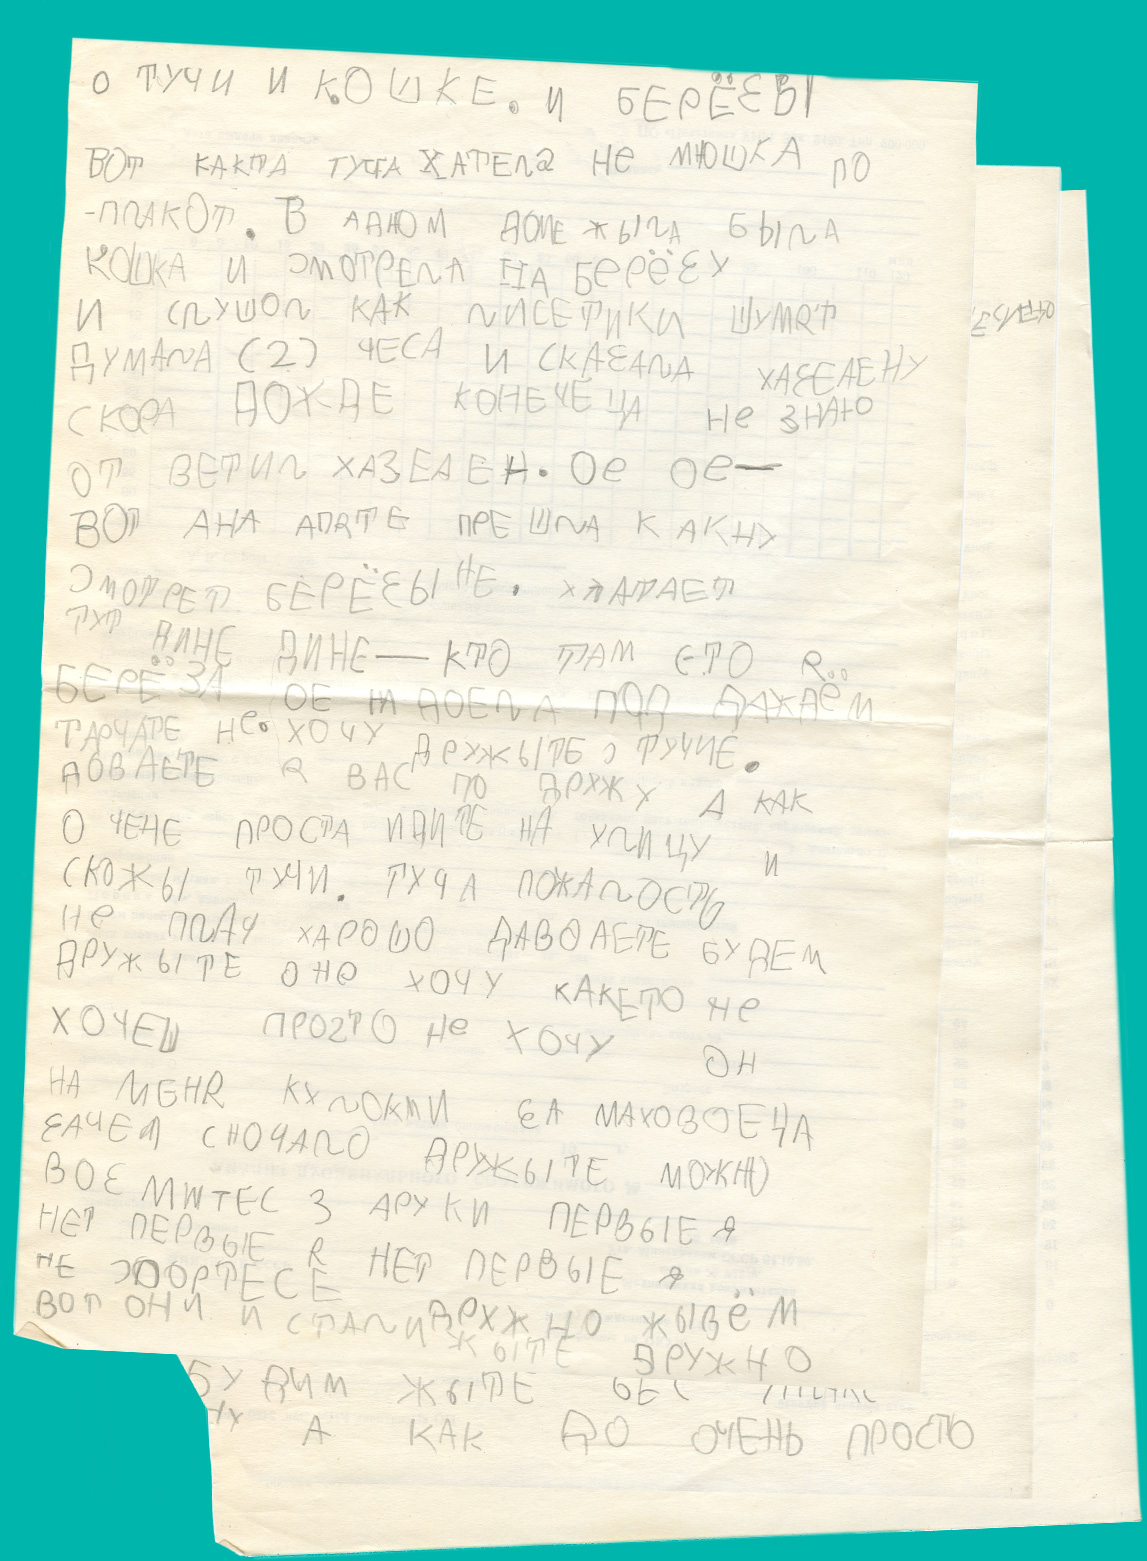 О ТУЧИ И КОШКЕ. И БЕРЁЗЫ
ВОТ КАКТА ТУЧА ХАТЕЛА НЕ МЮШКА ПО
-ПЛАКОТ. В АДНОМ ДОМЕ ЖЫЛА БЫЛА
КОШКА И СМОТРЕЛА НА БЕРЁЗУ
И СЛУШОЛ КАК ЛИСЕТИКИ ШУМЯТ
ДУМАЛА (2) ЧЕСА И СКАЗАЛА ХАЗЕДЕНУ
СКОРА ДОЖДЕ КОНЕЧЕЦА НЕ ЗНАЮ
ОТ ВЕТИЛ ХАЗЕДЕН. ОЕ ОЕ—
ВОТ АНА АПЯТЕ ПРЕШЛА К АКНУ
СМОТРЕТ БЕРЁЗЫ НЕ. ХВАТАЕТ
ТУТ ДИНЕ ДИНЕ — КТО ТАМ ЕТО Я..
БЕРЁЗА ОЕ НАДОЕЛА ПОД ДАЖДЁМ
ТАРЧАТЕ НЕ. ХОЧУ ДРУЖЫТЕ С ТУЧИЕ.
ДОВАЕТЕ Я ВАС ПО ДРУЖУ А КАК
О ЧЕНЕ ПРОСТА ИДИТЕ НА УЛИЦУ И
СКОЖЫ ТУЧИ. ТУЧА ПОЖАЛОСТЬ
НЕ ПЛАЧ ХАРОШО ДАВОАЕТЕ БУДЕМ
ДРУЖЫТЕ ОНЕ ХОЧУ КАКЕТО НЕ
ХОЧЕШ ПРОЗТО НЕ ХОЧУ ОН
НА МЕНЯ КУЛОКАМИ ЗА МАХОВОЕЦА
ЗАЧЕМ СНОЧАЛО ДРУЖЫТЕ МОЖНО
ВОЗ МИТЕС З АРУКИ ПЕРВЫЕ Я
НЕТ ПЕРВЫЕ Я НЕТ ПЕРВЫЕ Я
НЕ СПОРТЕСЕ
ВОТ ОНИ И СТАЛИ ДРУЖНО ЖЫВЁМ
ЖЫТЕ ДРУЖНО
БУДИМ ЖЫТЕ БЕС
А КАК ДО ОЧЕНЬ ПРОСТО